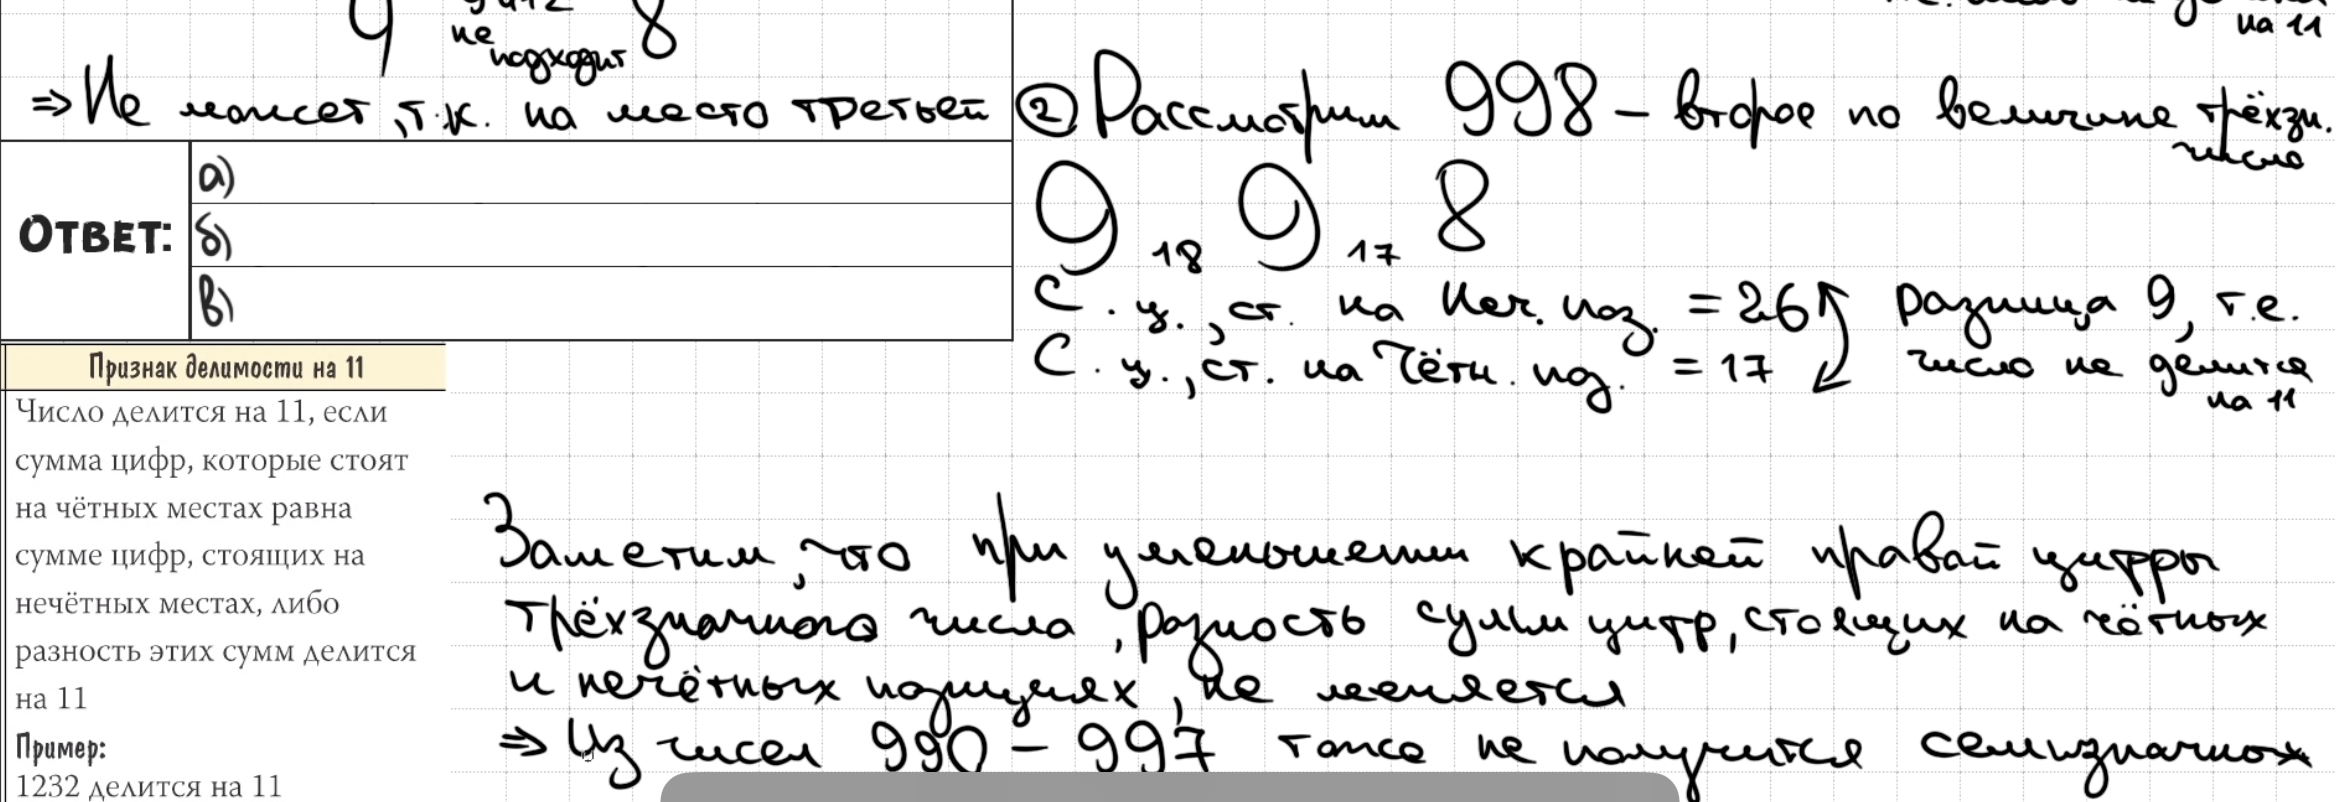 9 9 и 12 8
не
подходит
на 11
⇒ Не может, т.к. на место третьей
② Рассмотрим 998 – второе по величине трёхзн.
число
ОТВЕТ:
а)
б)
в)
9 18 9 17 8
С. ц., ст. на неч. поз. = 26 разница 9, т.е.
С. ц., ст. на чётн. поз. = 17 число не делится
на 11
Признак делимости на 11
Число делится на 11, если
сумма цифр, которые стоят
на чётных местах равна
сумме цифр, стоящих на
нечётных местах, либо
разность этих сумм делится
на 11
Пример:
1232 делится на 11
Заметим, что при уменьшении крайней правой цифры
трёхзначного числа, разность сумм цифр, стоящих на чётных
и нечётных позициях, не меняется
⇒ Из чисел 990 – 997 тоже не получится семизначных